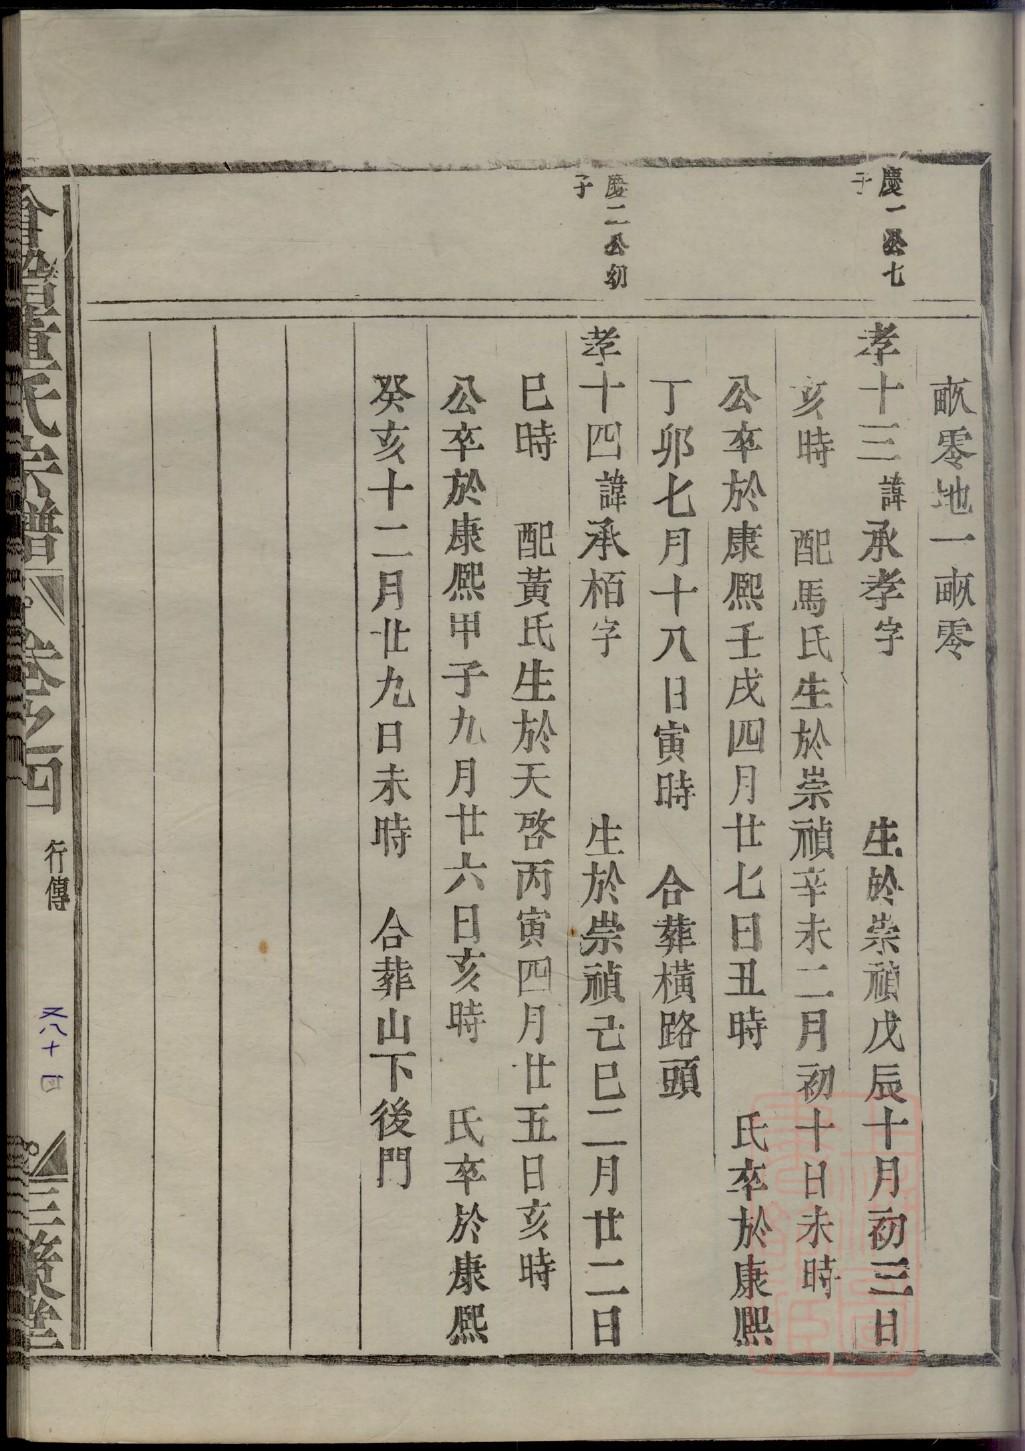 畝零地一畝零
慶一公七
子
孝十三諱承孝字　生於崇禎戊辰十月初三日
亥時　配馬氏生於崇禎辛未二月初十日未時
公卒於康熙壬戌四月廿七日丑時　氏卒於康熙
丁卯七月十八日寅時　合葬橫路頭
慶二公初
子
孝十四諱承栢字　生於崇禎己巳二月廿二日
巳時　配黃氏生於天啓丙寅四月廿五日亥時
公卒於康熙甲子九月廿六日亥時　氏卒於康熙
癸亥十二月廿九日未時　合葬山下後門
會稽董氏宗譜　卷之四　行傳　又八十四　三策堂